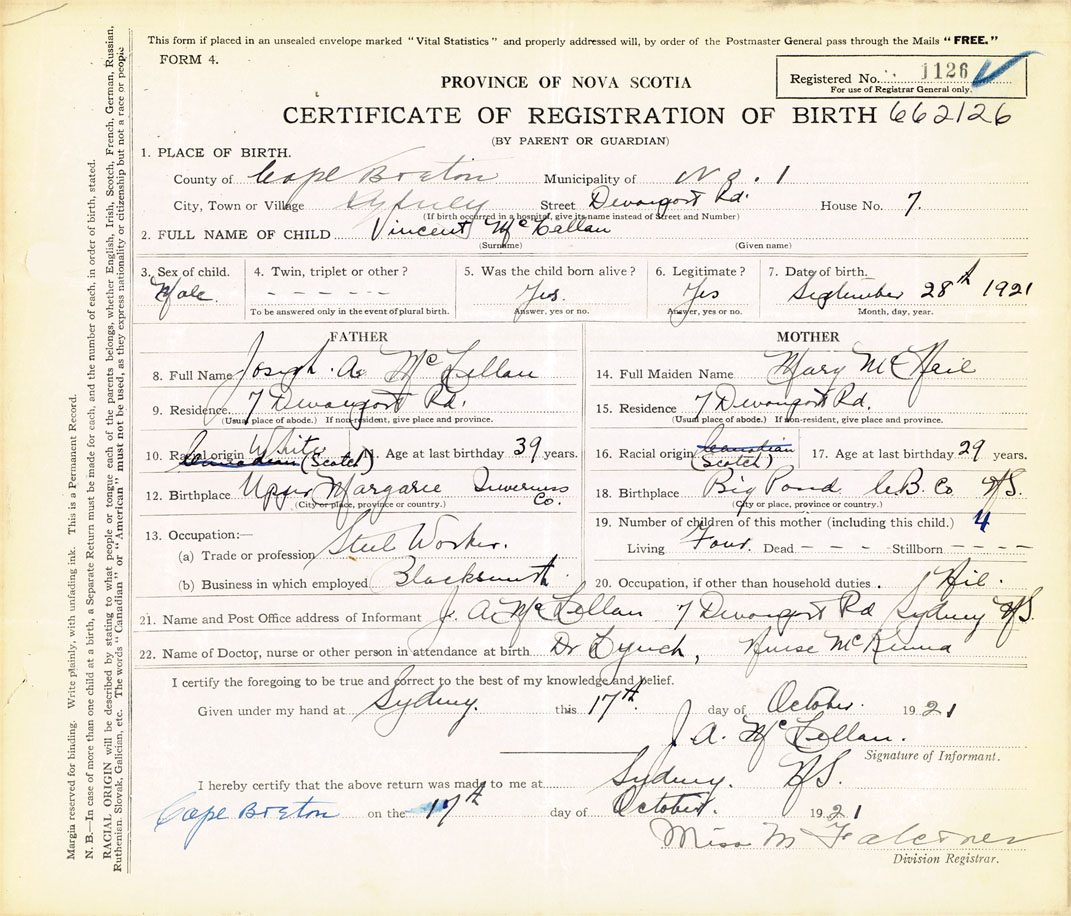 This form if placed in an unsealed envelope marked "Vital Statistics" and properly addressed will, by order of the Postmaster General pass through the Mails "FREE."
FORM 4.
Registered No. 1126
For use of Registrar General only.
PROVINCE OF NOVA SCOTIA
CERTIFICATE OF REGISTRATION OF BIRTH 662126
(BY PARENT OR GUARDIAN)
1. PLACE OF BIRTH.
County of Cape Breton Municipality of No. 1
City, Town or Village Sydney Street Devonport Rd. House No. 7.
(If birth occurred in a hospital, give its name instead of Street and Number)
2. FULL NAME OF CHILD Vincent McLellan
(Surname) (Given name)
3. Sex of child. 4. Twin, triplet or other? 5. Was the child born alive? 6. Legitimate? 7. Date of birth.
Male. - - - - - - Yes. Yes September 28th 1921
To be answered only in the event of plural birth. Answer, yes or no. Answer, yes or no. Month, day, year.
FATHER MOTHER
8. Full Name Joseph. A. McLellan 14. Full Maiden Name Mary McNeil
9. Residence 7 Devonport Rd. 15. Residence 7 Devonport Rd.
(Usual place of abode.) If non-resident, give place and province. (Usual place of abode.) If non-resident, give place and province.
10. Racial origin White Canadian (Scotch) 11. Age at last birthday 39 years. 16. Racial origin Canadian (Scotch) 17. Age at last birthday 29 years.
12. Birthplace Upper Margaree Inverness Co. 18. Birthplace Big Pond C.B. Co NS.
(City or place, province or country.) (City or place, province or country.)
13. Occupation:— 19. Number of children of this mother (including this child.) 4
(a) Trade or profession Steel Worker. Living Four. Dead - - - - Stillborn - - - -
(b) Business in which employed Blacksmith 20. Occupation, if other than household duties. Nil.
21. Name and Post Office address of Informant J. A. McLellan 7 Devonport Rd Sydney NS.
22. Name of Doctor, nurse or other person in attendance at birth Dr Lynch, Nurse McKinna
I certify the foregoing to be true and correct to the best of my knowledge and belief.
Given under my hand at Sydney. this 17th. day of October. 1921
J. A. McLellan.
Signature of Informant.
I hereby certify that the above return was made to me at Sydney. NS.
Cape Breton on the 17th day of October. 1921
Miss M Falconer
Division Registrar.
Margin reserved for binding. Write plainly, with unfading ink. This is a Permanent Record.
N. B.—In case of more than one child at a birth, a Separate Return must be made for each, and the number of each, in order of birth, stated.
RACIAL ORIGIN will be described by stating to what people or tongue each of the parents belongs, whether English, Irish, Scotch, French, German, Russian,
Ruthenian, Slovak, Galician, etc. The words "Canadian" or "American" must not be used, as they express nationality or citizenship but not a race or people